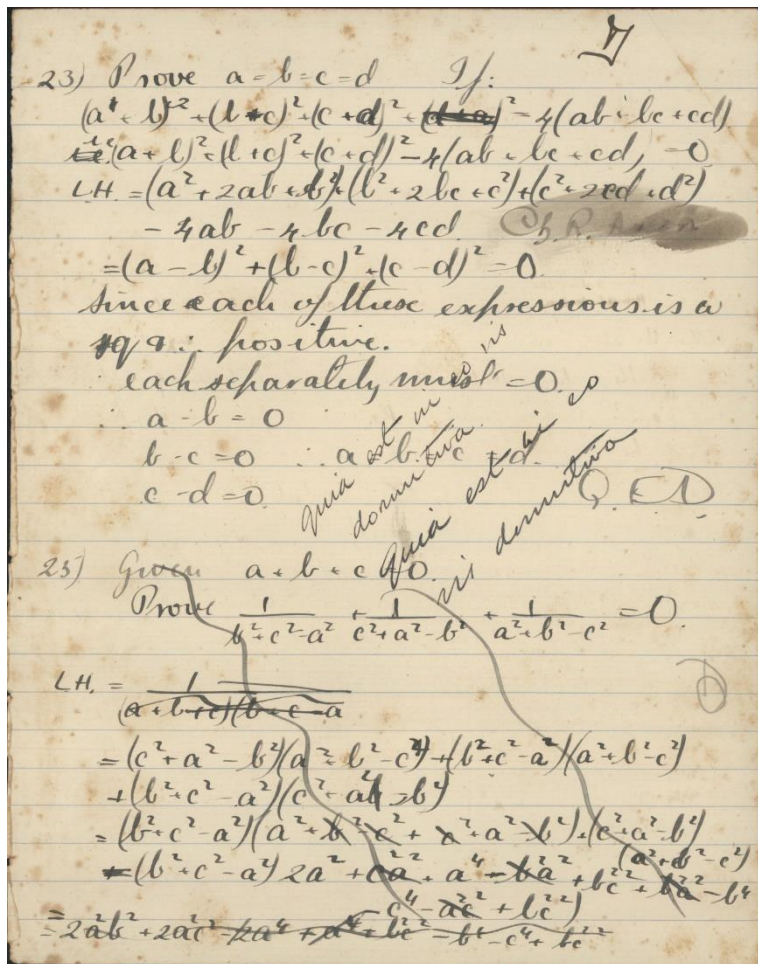 23) Prove a = b = c = d If:
(a + b)² + (b + c)² + (c + d)² + (d + a)² - 4(ab + bc + cd)
(a + b)² + (b + c)² + (c + d)² - 4(ab + bc + cd) = 0
LH. = (a² + 2ab + b²) + (b² + 2bc + c²) + (c² + 2cd + d²)
- 4ab - 4bc - 4cd
= (a - b)² + (b - c)² + (c - d)² = 0
since each of these expressions is a
sq ∴ positive.
each separately must = 0.
∴ a - b = 0
b - c = 0 ∴ a = b = c = d.
c - d = 0. Q.E.D
quia est in eo
quia est in eo
25) Given a + b + c = 0.
Prove 1/(b² + c² - a²) + 1/(c² + a² - b²) + 1/(a² + b² - c²) = 0.
LH. = 1/(a + b + c)(b + c - a
= (c² + a² - b²)(a² + b² - c²) + (b² + c² - a²)(a² + b² - c²)
+ (b² + c² - a²)(c² + a² - b²)
= (b² + c² - a²)(a² + b² - c² + c² + a² - b²) + (c² + a² - b²)
(a² + b² - c²)
= (b² + c² - a²) 2a² + c²a² + a⁴ - b²a² + b²c² + b²a² - b⁴
- c⁴ - a²c² + b²c²)
= 2a²b² + 2a²c² - 2a⁴ + a⁴ + b²c² - b⁴ - c⁴ + b²c²